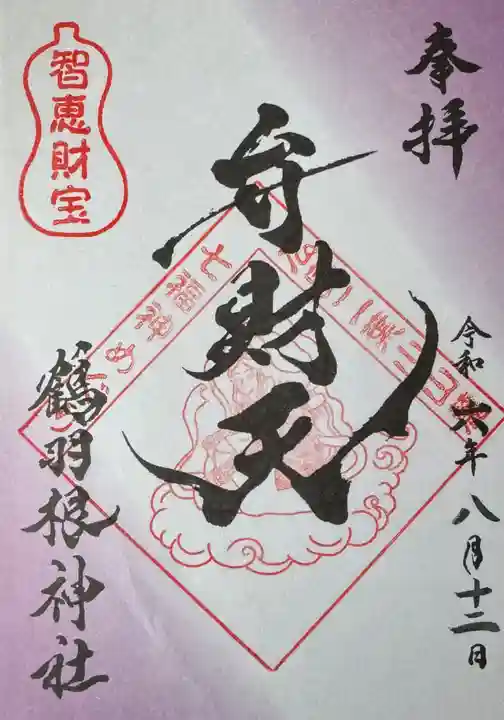 奉拝
弁財天
令和六年八月十二日
鶴羽根神社
智恵財宝
七福神め